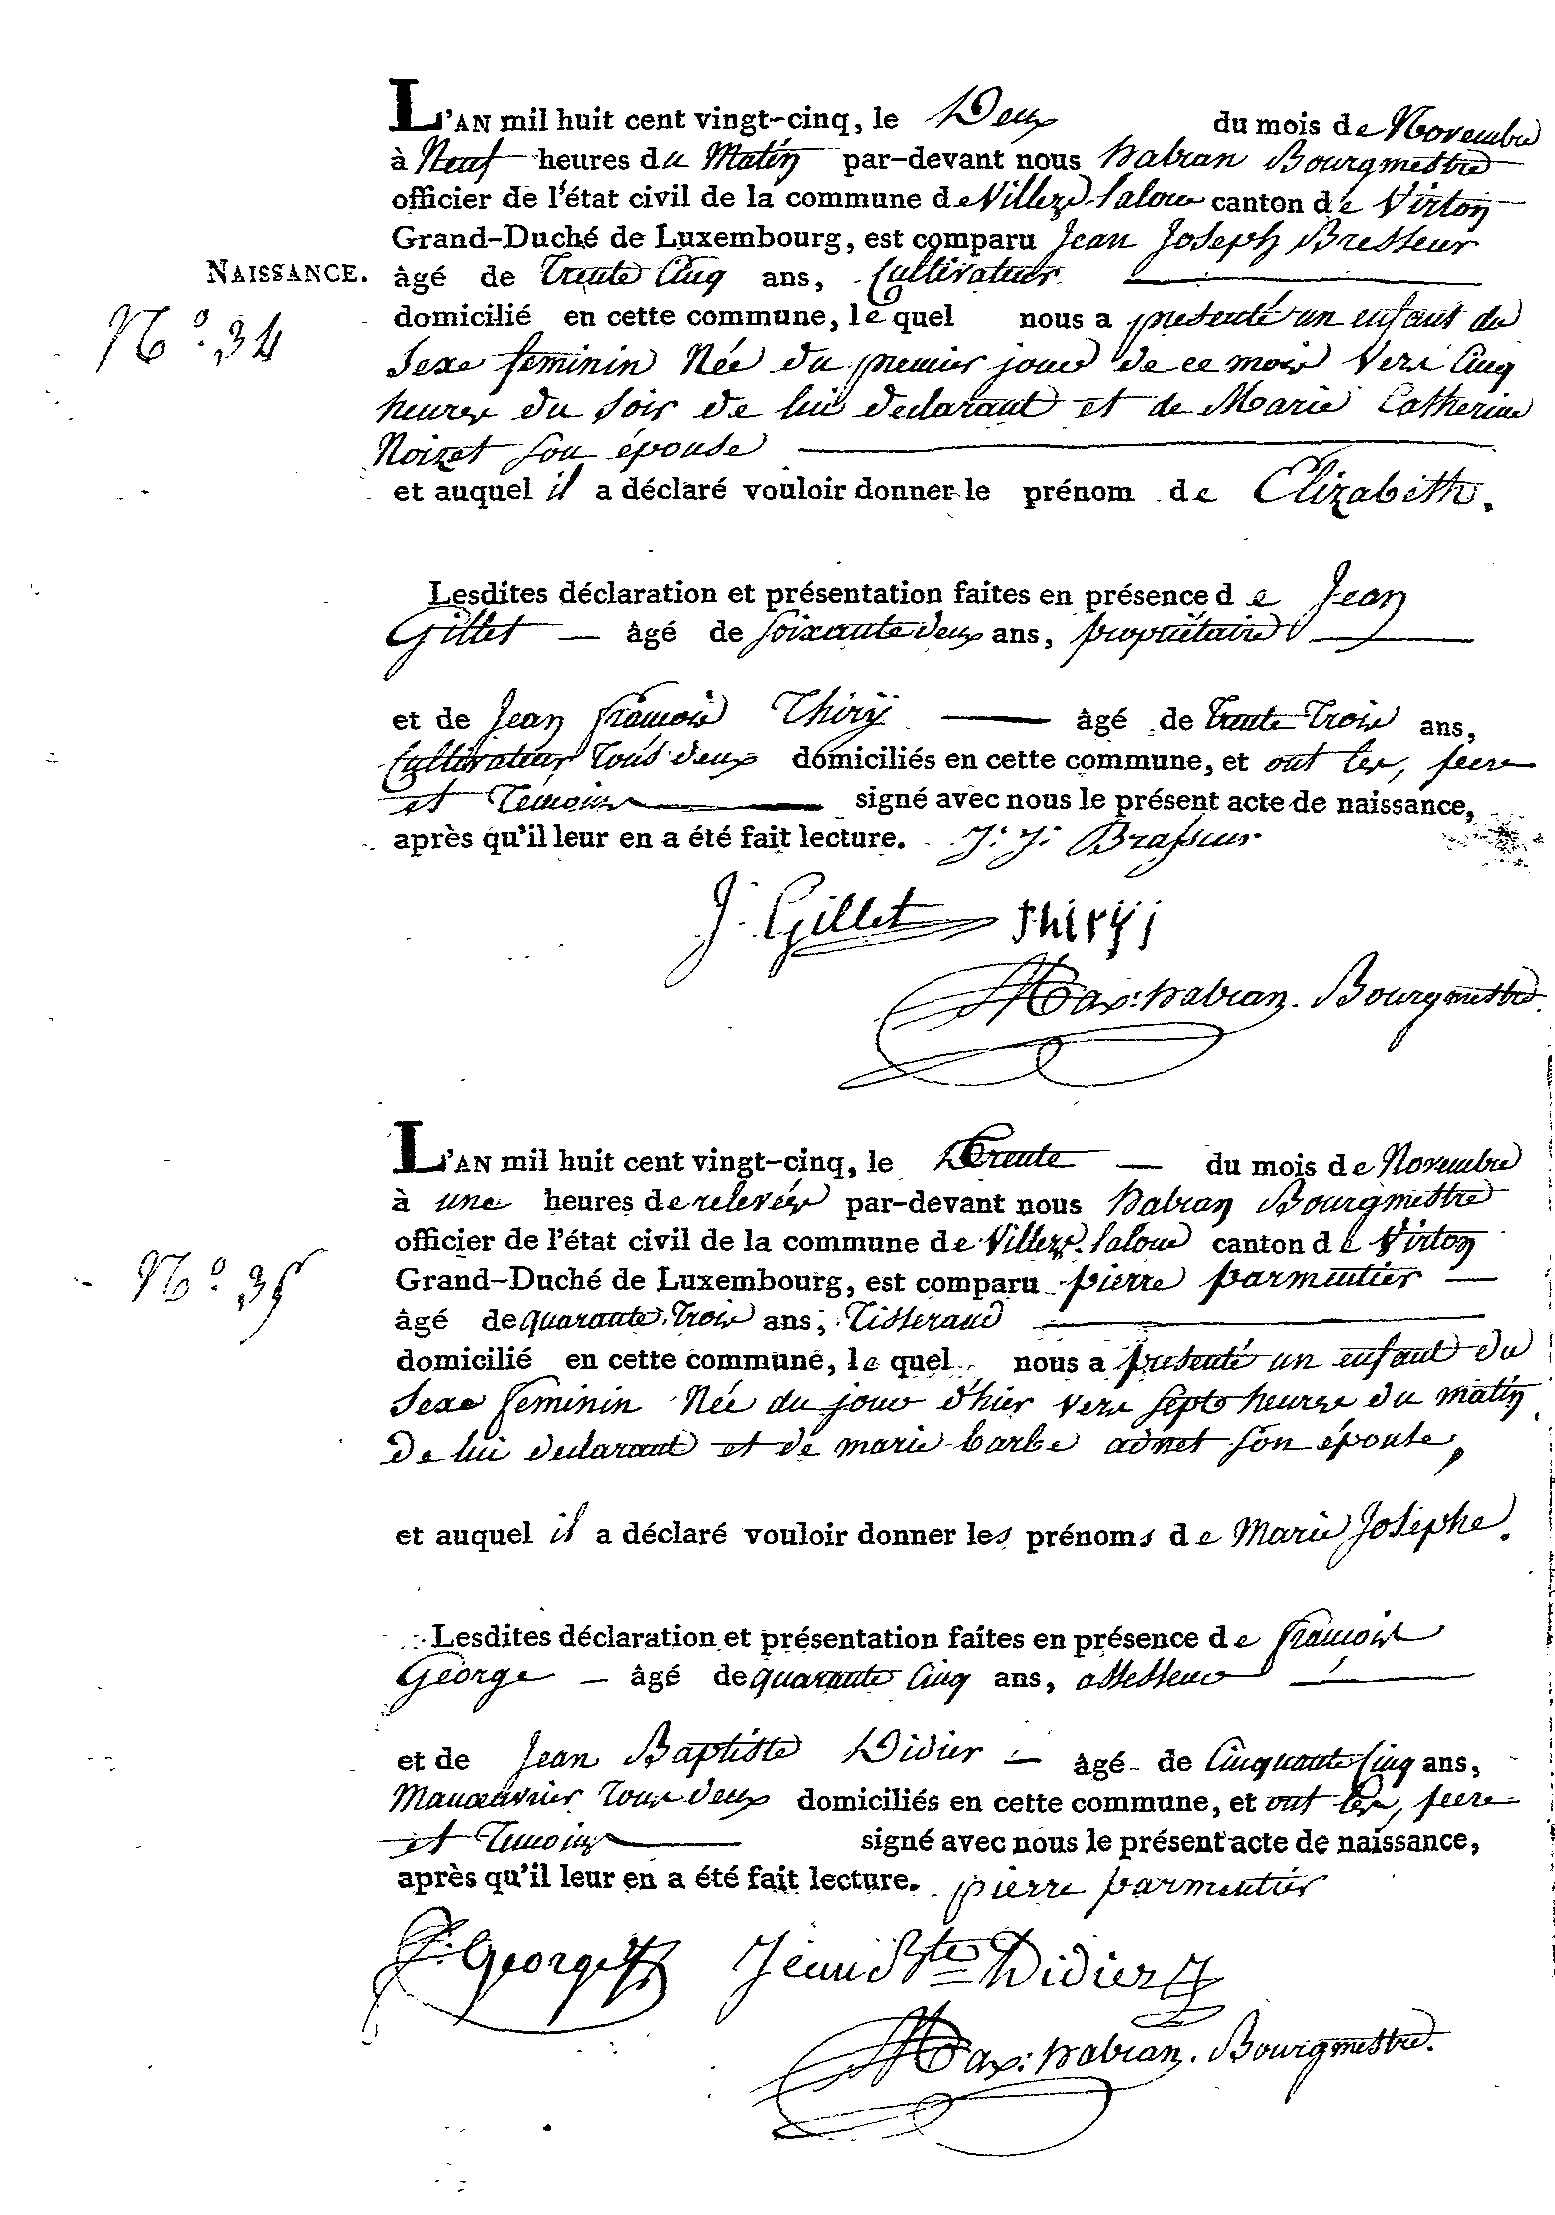 L'AN mil huit cent vingt-cinq, le Deux du mois de Novembre
à Neuf heures du Matin par-devant nous habran Bourgmestre
officier de l'état civil de la commune de Villers-laloue canton de Virton
Grand-Duché de Luxembourg, est comparu Jean Joseph Brasseur
NAISSANCE. âgé de Trente Cinq ans, Cultivateur
N° 34
domicilié en cette commune, le quel nous a presenté un enfant du
Sexe feminin Née du premier jour de ce mois vers Cinq
heures du soir de lui declarant et de Marie Catherine
Noizet son épouse
et auquel il a déclaré vouloir donner le prénom de Elizabeth.
Lesdites déclaration et présentation faites en présence de Jean
Gillet — âgé de soixante deux ans, propriétaire
et de Jean françois Thirÿ — âgé de trente Trois ans,
Cultivateur Tous deux domiciliés en cette commune, et ont les, pere
et Temoins signé avec nous le présent acte de naissance,
après qu'il leur en a été fait lecture. J. J. Brasseur
J. Gillet thiryj
Max: habran. Bourgmestre.
L'AN mil huit cent vingt-cinq, le Trente — du mois de Novembre
à une heures de relevée par-devant nous habran Bourgmestre
officier de l'état civil de la commune de Villers-laloue canton de Virton
N° 35
Grand-Duché de Luxembourg, est comparu pierre parmentier —
âgé de quarante Trois ans, Tisserand
domicilié en cette commune, le quel nous a presenté un enfant du
Sexe feminin Née du jour d'hier vers sept heures du matin
de lui declarant et de marie barbe adnet son épouse,
et auquel il a déclaré vouloir donner les prénoms de Marie Josephe.
Lesdites déclaration et présentation faites en présence de françois
George — âgé de quarante Cinq ans, assesseur
et de Jean Baptiste Didier — âgé de Cinquante Cinq ans,
Manœuvrier Tous deux domiciliés en cette commune, et ont les, pere
et Temoins signé avec nous le présent acte de naissance,
après qu'il leur en a été fait lecture. pierre parmentier
F: George Jean Bte Didier
Max: habran. Bourgmestre.